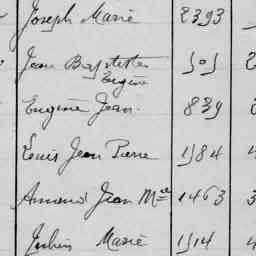 Joseph Marie 2393
Jean Baptiste 505
Eugène
Eugène Jean 839
Louis Jean Pierre 1584
Armand Jean Mie 1463
Marie 1514